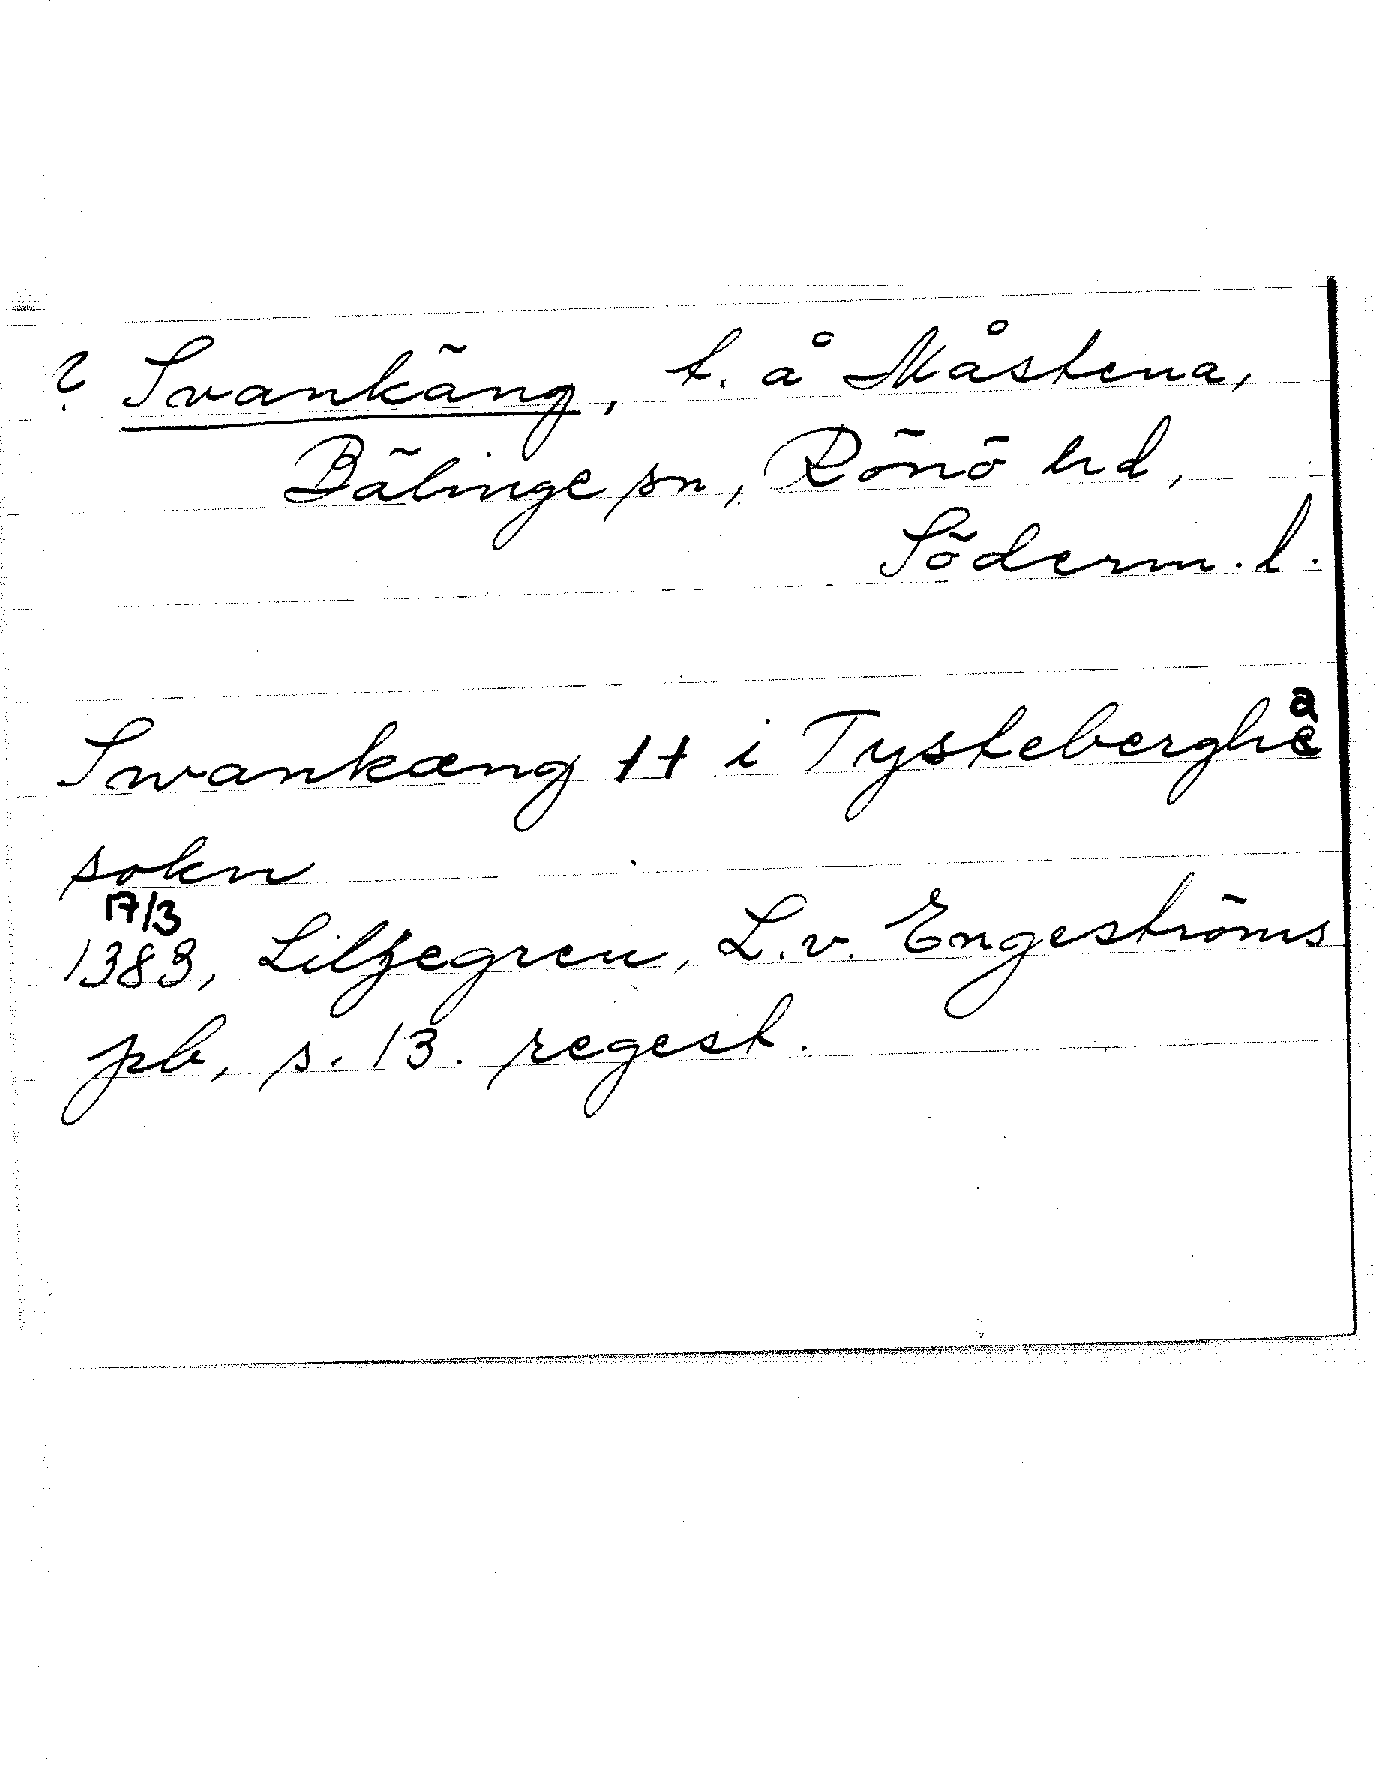 ? Svankäng, t. å Måstena,
Bälinge sn, Rönö hd,
Söderm. l.
Swankæng tt i Tysteberghe
a
sokn
17/3
1383, Liljegren, L. v. Engeströms
pb, s. 13. regest.